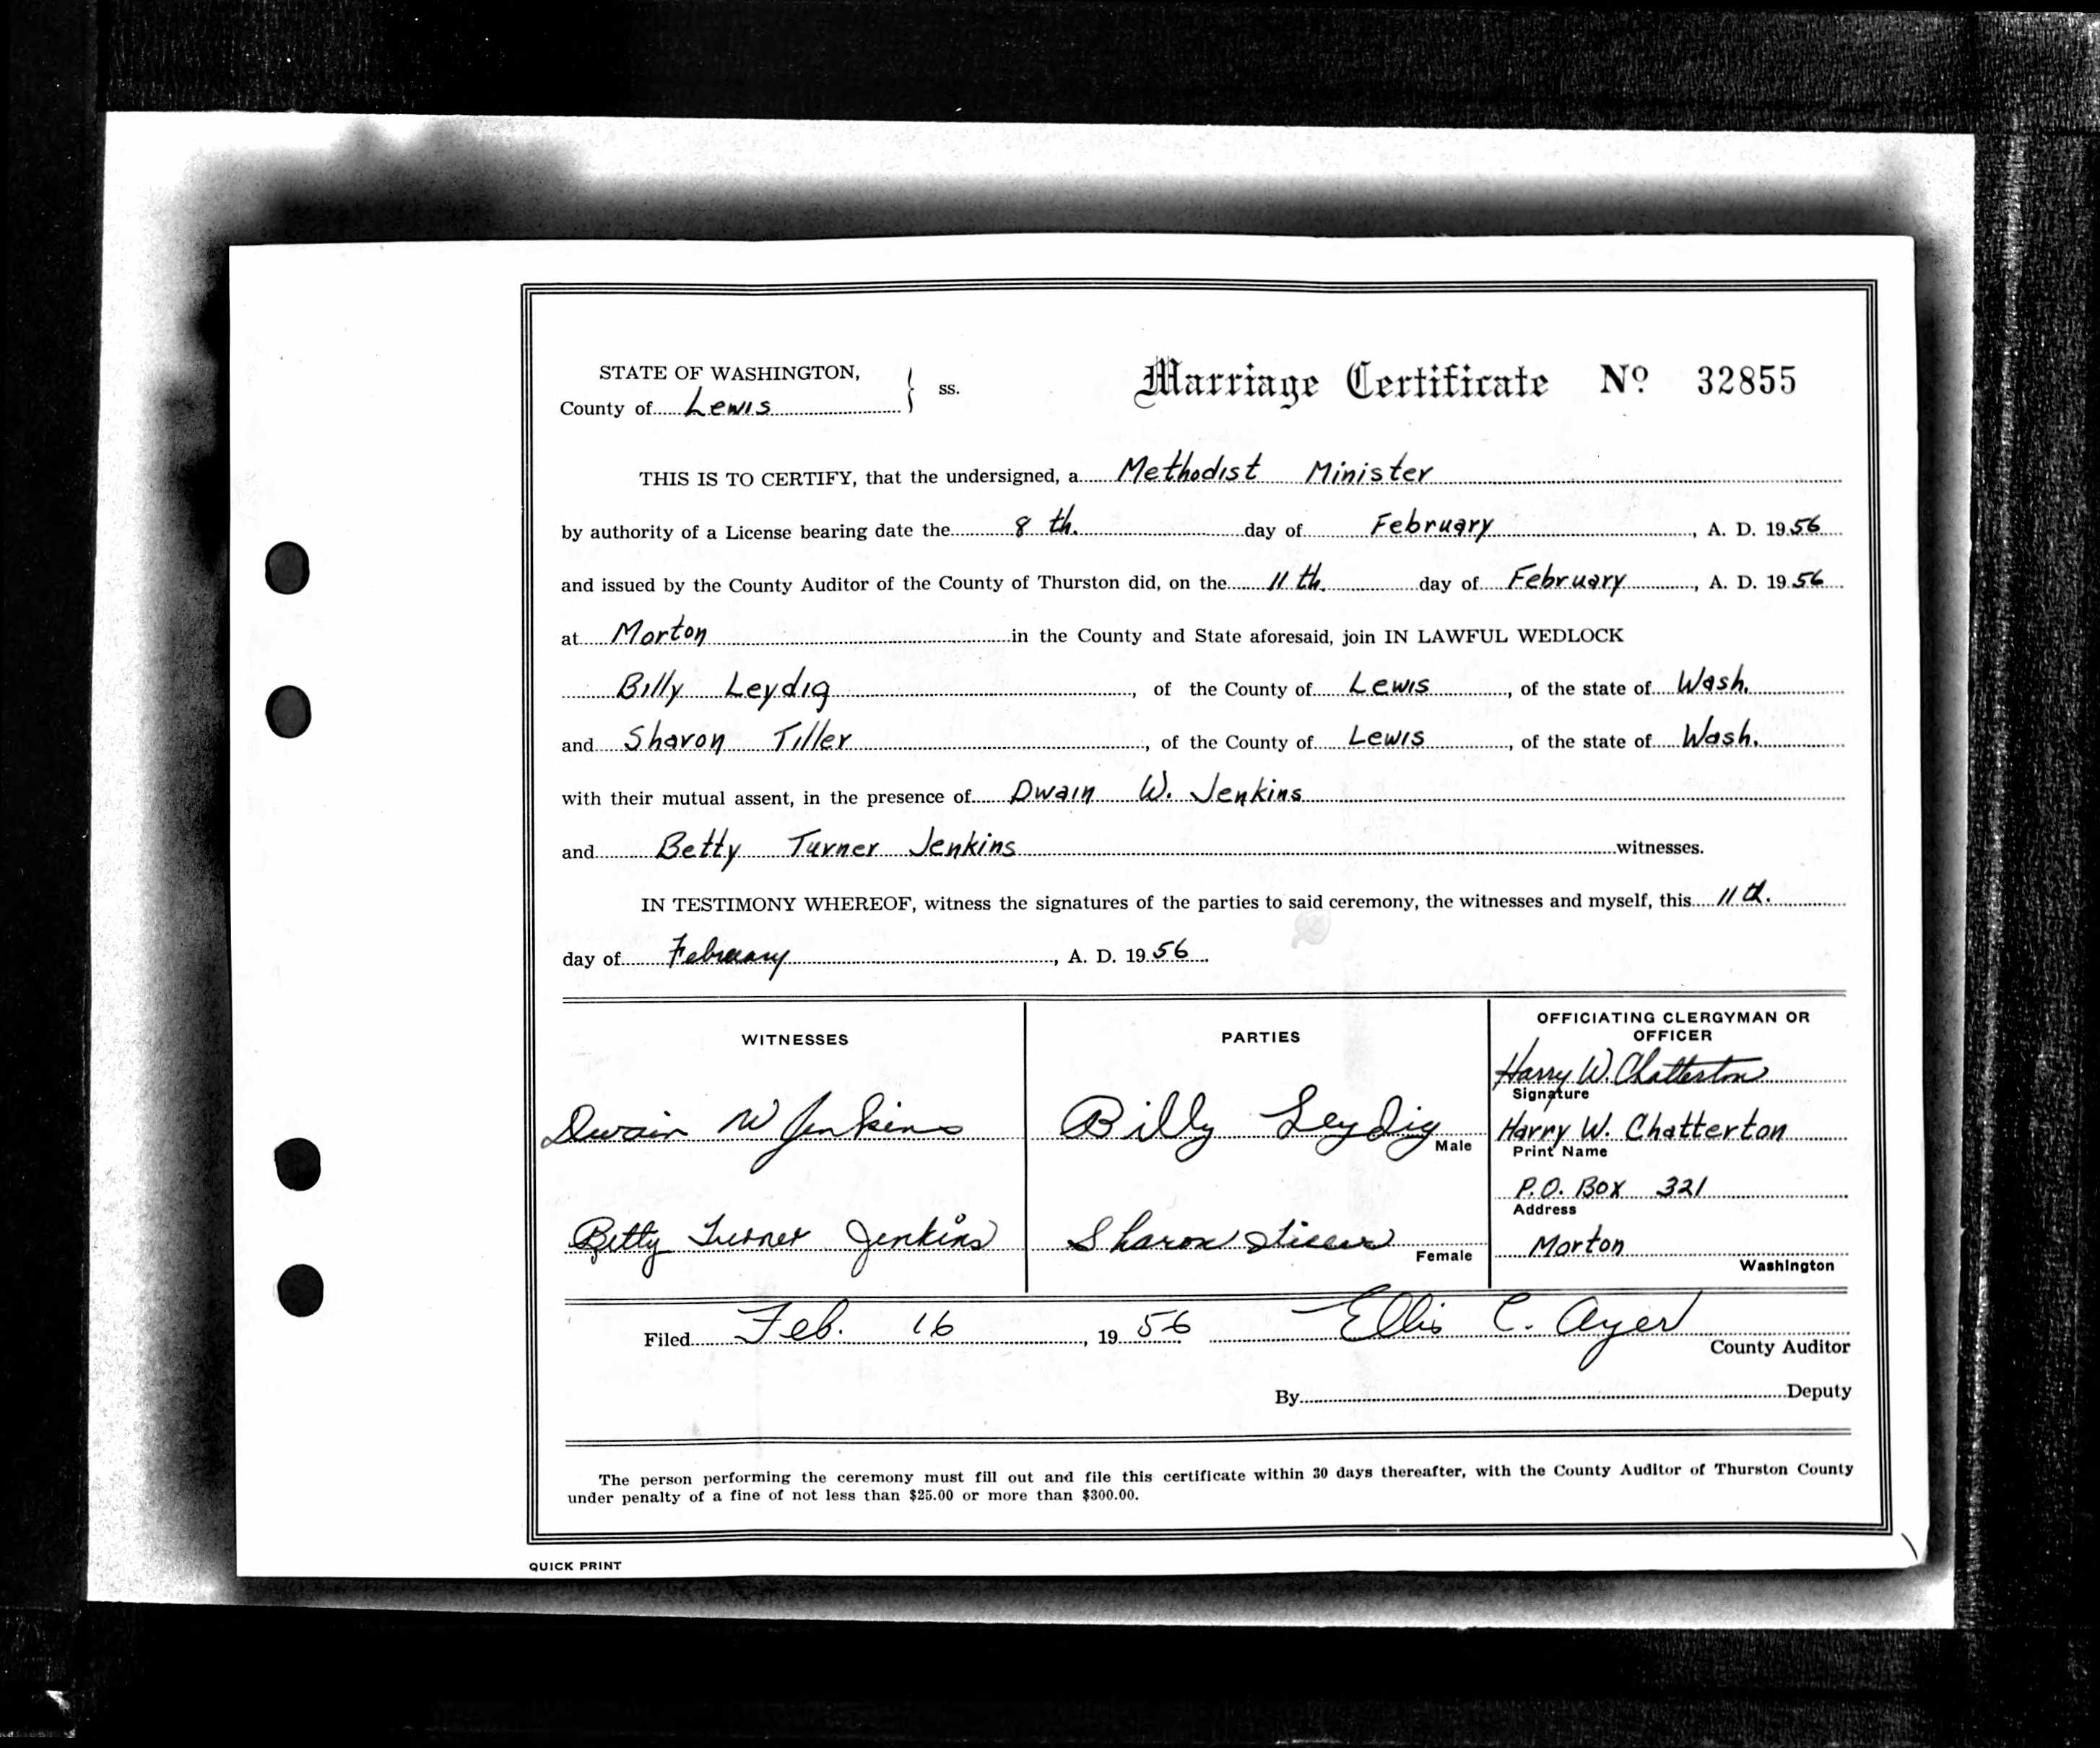 STATE OF WASHINGTON,
County of Lewis } ss.
Marriage Certificate Nº 32855
THIS IS TO CERTIFY, that the undersigned, a Methodist Minister
by authority of a License bearing date the 8 th. day of February, A. D. 1956
and issued by the County Auditor of the County of Thurston did, on the 11 th. day of February, A. D. 1956
at Morton in the County and State aforesaid, join IN LAWFUL WEDLOCK
Billy Leydig, of the County of Lewis, of the state of Wash.
and Sharon Tiller, of the County of Lewis, of the state of Wash.
with their mutual assent, in the presence of Dwain W. Jenkins
and Betty Turner Jenkins witnesses.
IN TESTIMONY WHEREOF, witness the signatures of the parties to said ceremony, the witnesses and myself, this 11 th.
day of February, A. D. 1956
WITNESSES
Dwain W Jenkins
Betty Turner Jenkins
PARTIES
Billy Leydig
Male
Sharon Tiller
Female
OFFICIATING CLERGYMAN OR
OFFICER
Harry W. Chatterton
Signature
Harry W. Chatterton
Print Name
P.O. Box 321
Address
Morton
Washington
Filed Feb. 16, 1956 Ellis C. Ayer
County Auditor
By Deputy
The person performing the ceremony must fill out and file this certificate within 30 days thereafter, with the County Auditor of Thurston County
under penalty of a fine of not less than $25.00 or more than $300.00.
QUICK PRINT